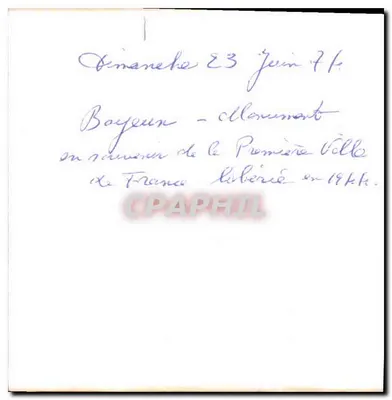 Dimanche 23 Juin 74
Bayeux - Monument
en souvenir de la Première Ville
de France libérée en 1944.
CPAPHIL